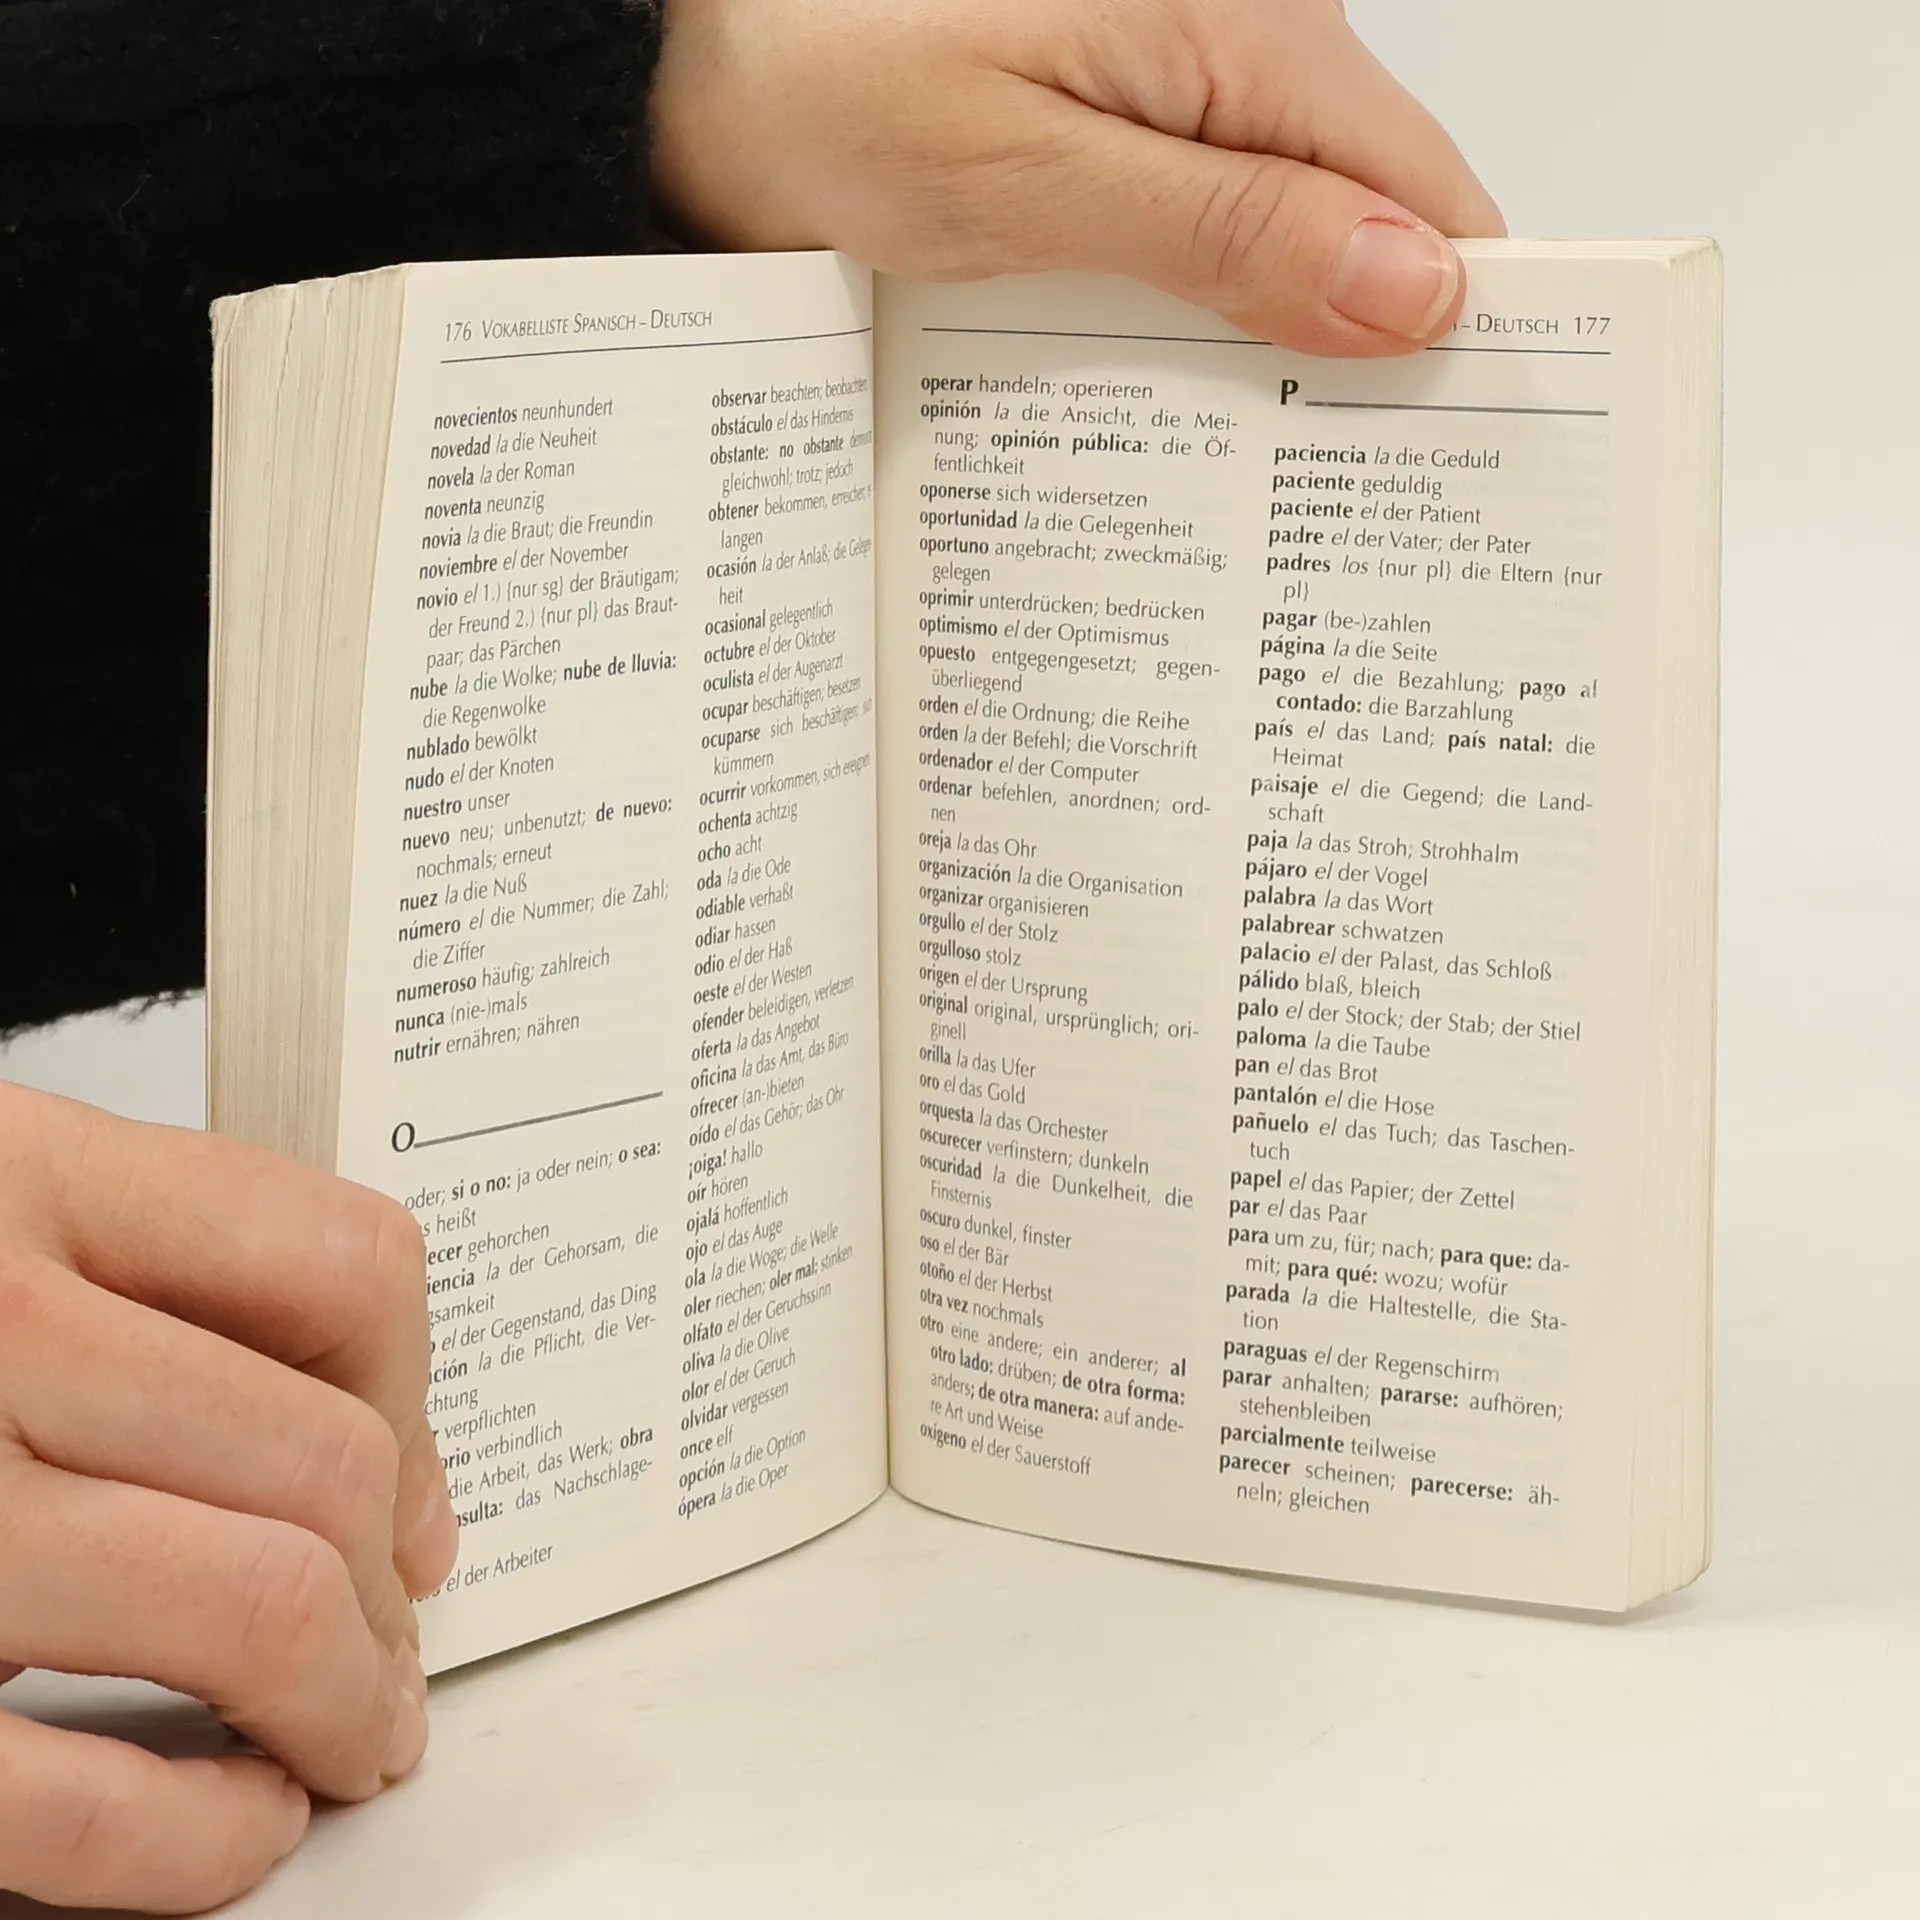 176 VOKABELLISTE SPANISCH – DEUTSCH
novecientos neunhundert
novedad la die Neuheit
novela la der Roman
noventa neunzig
novia la die Braut; die Freundin
noviembre el der November
novio el 1.) {nur sg} der Bräutigam;
der Freund 2.) {nur pl} das Braut-
paar; das Pärchen
nube la die Wolke; nube de lluvia:
die Regenwolke
nublado bewölkt
nudo el der Knoten
nuestro unser
nuevo neu; unbenutzt; de nuevo:
nochmals; erneut
nuez la die Nuß
número el die Nummer; die Zahl;
die Ziffer
numeroso häufig; zahlreich
nunca (nie-)mals
nutrir ernähren; nähren
O
oder; si o no: ja oder nein; o sea:
heißt
gehorchen
la der Gehorsam, die
el der Gegenstand, das Ding
la die Pflicht, die Ver-
verpflichten
verbindlich
die Arbeit, das Werk; obra
das Nachschlage-
el der Arbeiter
observar beachten; beobachten
obstáculo el das Hindernis
obstante: no obstante
gleichwohl; trotz; jedoch
obtener bekommen, erreichen,
langen
ocasión la der Anlaß; die Gelege
heit
ocasional gelegentlich
octubre el der Oktober
oculista el der Augenarzt
ocupar beschäftigen; besetzen
ocuparse sich beschäftigen;
kümmern
ocurrir vorkommen, sich ereignen
ochenta achtzig
ocho acht
oda la die Ode
odiable verhaßt
odiar hassen
odio el der Haß
oeste el der Westen
ofender beleidigen, verletzen
oferta la das Angebot
oficina la das Amt, das Büro
ofrecer (an-)bieten
oído el das Gehör; das Ohr
¡oiga! hallo
oír hören
ojalá hoffentlich
ojo el das Auge
ola la die Woge; die Welle
oler riechen; oler mal: stinken
olfato el der Geruchssinn
oliva la die Olive
olor el der Geruch
olvidar vergessen
once elf
opción la die Option
ópera la die Oper
– DEUTSCH 177
operar handeln; operieren
opinión la die Ansicht, die Mei-
nung; opinión pública: die Öf-
fentlichkeit
oponerse sich widersetzen
oportunidad la die Gelegenheit
oportuno angebracht; zweckmäßig;
gelegen
oprimir unterdrücken; bedrücken
optimismo el der Optimismus
opuesto entgegengesetzt; gegen-
überliegend
orden el die Ordnung; die Reihe
orden la der Befehl; die Vorschrift
ordenador el der Computer
ordenar befehlen, anordnen; ord-
nen
oreja la das Ohr
organización la die Organisation
organizar organisieren
orgullo el der Stolz
orgulloso stolz
origen el der Ursprung
original original, ursprünglich; ori-
ginell
orilla la das Ufer
oro el das Gold
orquesta la das Orchester
oscurecer verfinstern; dunkeln
oscuridad la die Dunkelheit, die
Finsternis
oscuro dunkel, finster
oso el der Bär
otoño el der Herbst
otra vez nochmals
otro eine andere; ein anderer; al
otro lado: drüben; de otra forma:
anders; de otra manera: auf ande-
re Art und Weise
oxígeno el der Sauerstoff
P
paciencia la die Geduld
paciente geduldig
paciente el der Patient
padre el der Vater; der Pater
padres los {nur pl} die Eltern {nur
pl}
pagar (be-)zahlen
página la die Seite
pago el die Bezahlung; pago al
contado: die Barzahlung
país el das Land; país natal: die
Heimat
paisaje el die Gegend; die Land-
schaft
paja la das Stroh; Strohhalm
pájaro el der Vogel
palabra la das Wort
palabrear schwatzen
palacio el der Palast, das Schloß
pálido blaß, bleich
palo el der Stock; der Stab; der Stiel
paloma la die Taube
pan el das Brot
pantalón el die Hose
pañuelo el das Tuch; das Taschen-
tuch
papel el das Papier; der Zettel
par el das Paar
para um zu, für; nach; para que: da-
mit; para qué: wozu; wofür
parada la die Haltestelle, die Sta-
tion
paraguas el der Regenschirm
parar anhalten; pararse: aufhören;
stehenbleiben
parcialmente teilweise
parecer scheinen; parecerse: äh-
neln; gleichen